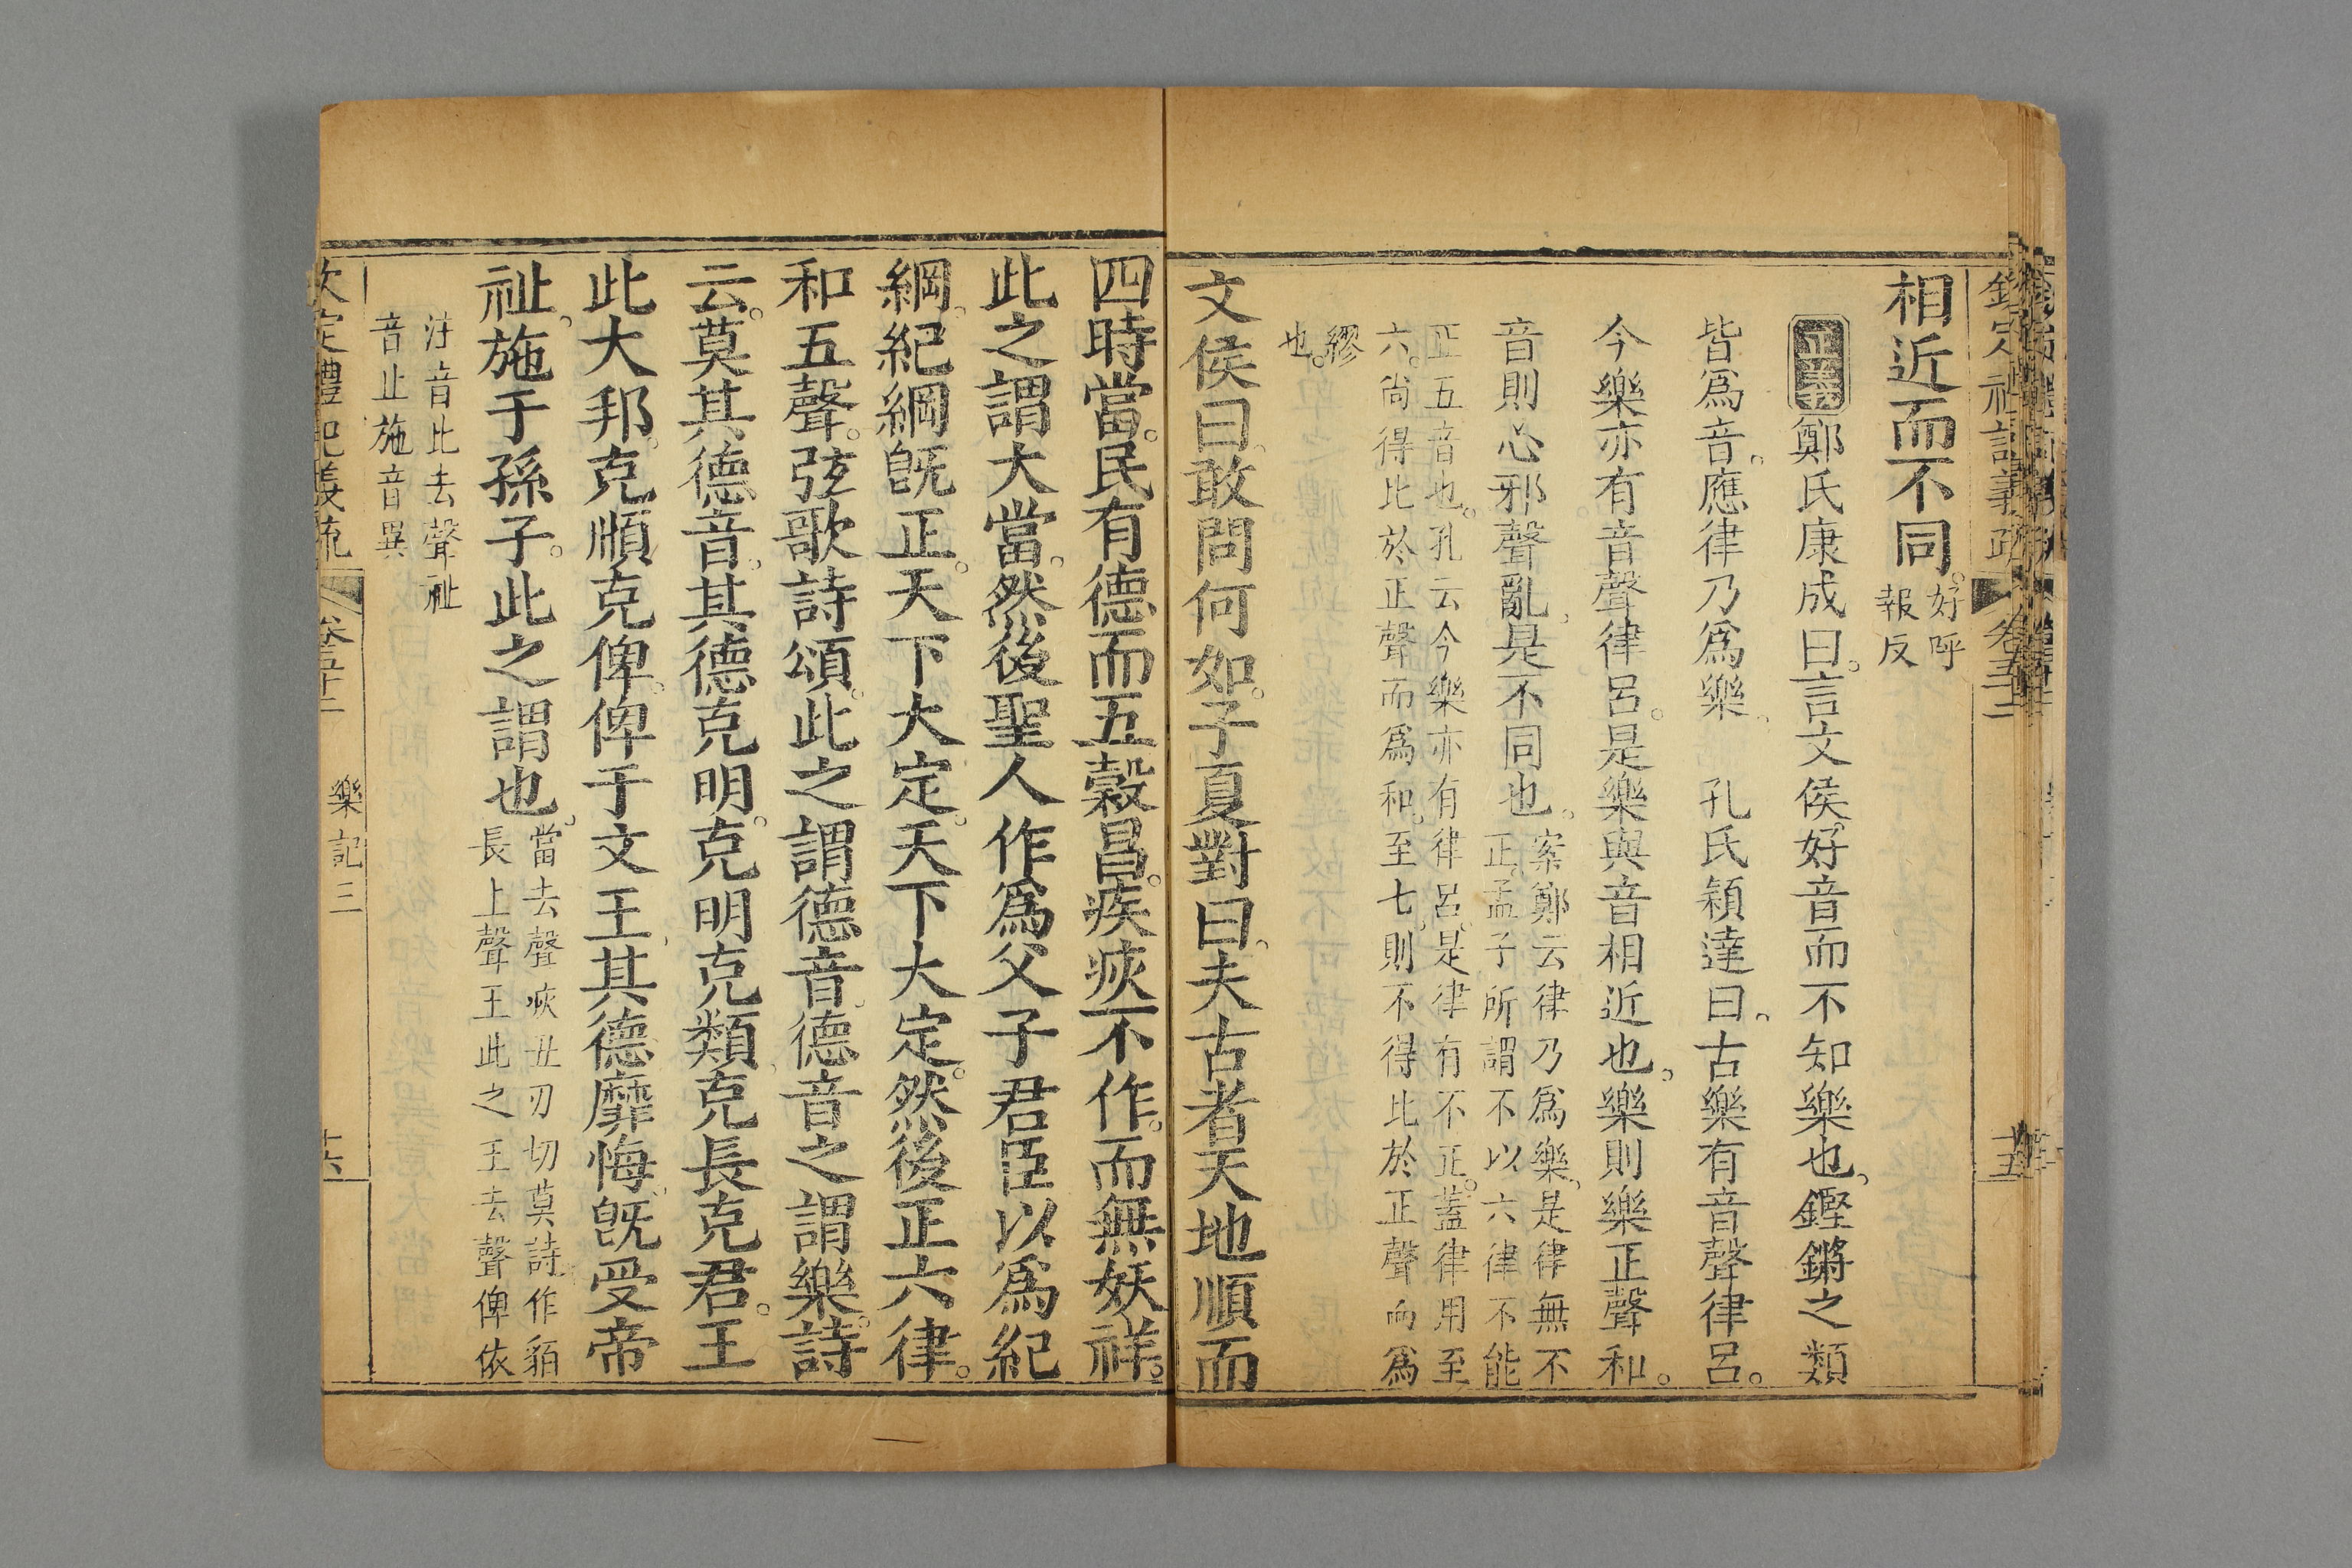 相近而不同。好呼
報反
正義鄭氏康成曰。言文侯好音而不知樂也。鏗鏘之類
皆爲音。應律乃爲樂。 孔氏穎達曰。古樂有音聲律呂。
今樂亦有音聲律呂。是樂與音相近也。樂則樂正聲和。
音則心邪聲亂。是不同也。案鄭云律乃爲樂。是律無不
正。孟子所謂不以六律不能
正五音也。孔云今樂亦有律呂。是律有不正。蓋律用至
六。尙得比於正聲而爲和。至七。則不得比於正聲而爲
繆
也。
文侯曰。敢問何如。子夏對曰。夫古者天地順而
四時當。民有德而五穀昌。疾疢不作。而無妖祥。
此之謂大當。然後聖人作爲父子君臣以爲紀
綱。紀綱旣正。天下大定。天下大定。然後正六律。
和五聲。弦歌詩頌。此之謂德音。德音之謂樂。詩
云。莫其德音。其德克明。克明克類。克長克君。王
此大邦。克順克俾。俾于文王。其德靡悔。旣受帝
祉。施于孫子。此之謂也。當去聲疢丑刃切莫詩作貊
長上聲王此之王去聲俾依
注音比去聲祉
音止施音異
欽定禮記義疏 卷五十二 樂記三 十六